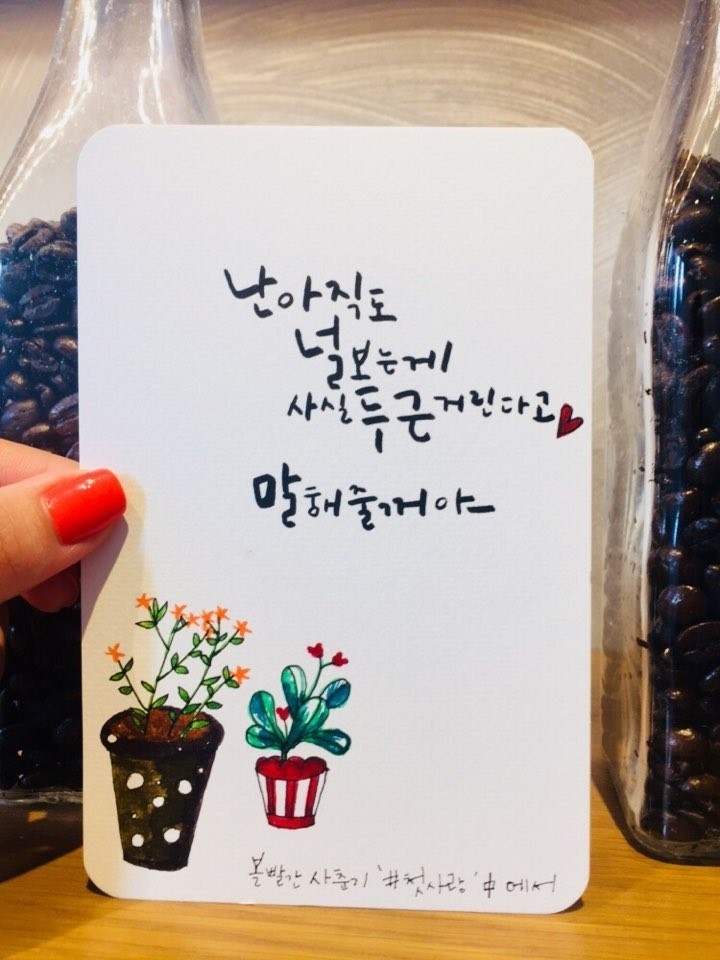 난 아직도
널 보는게
사실 두근거린다고
말해줄꺼야
볼빨간 사춘기 '#첫사랑' 中 에서